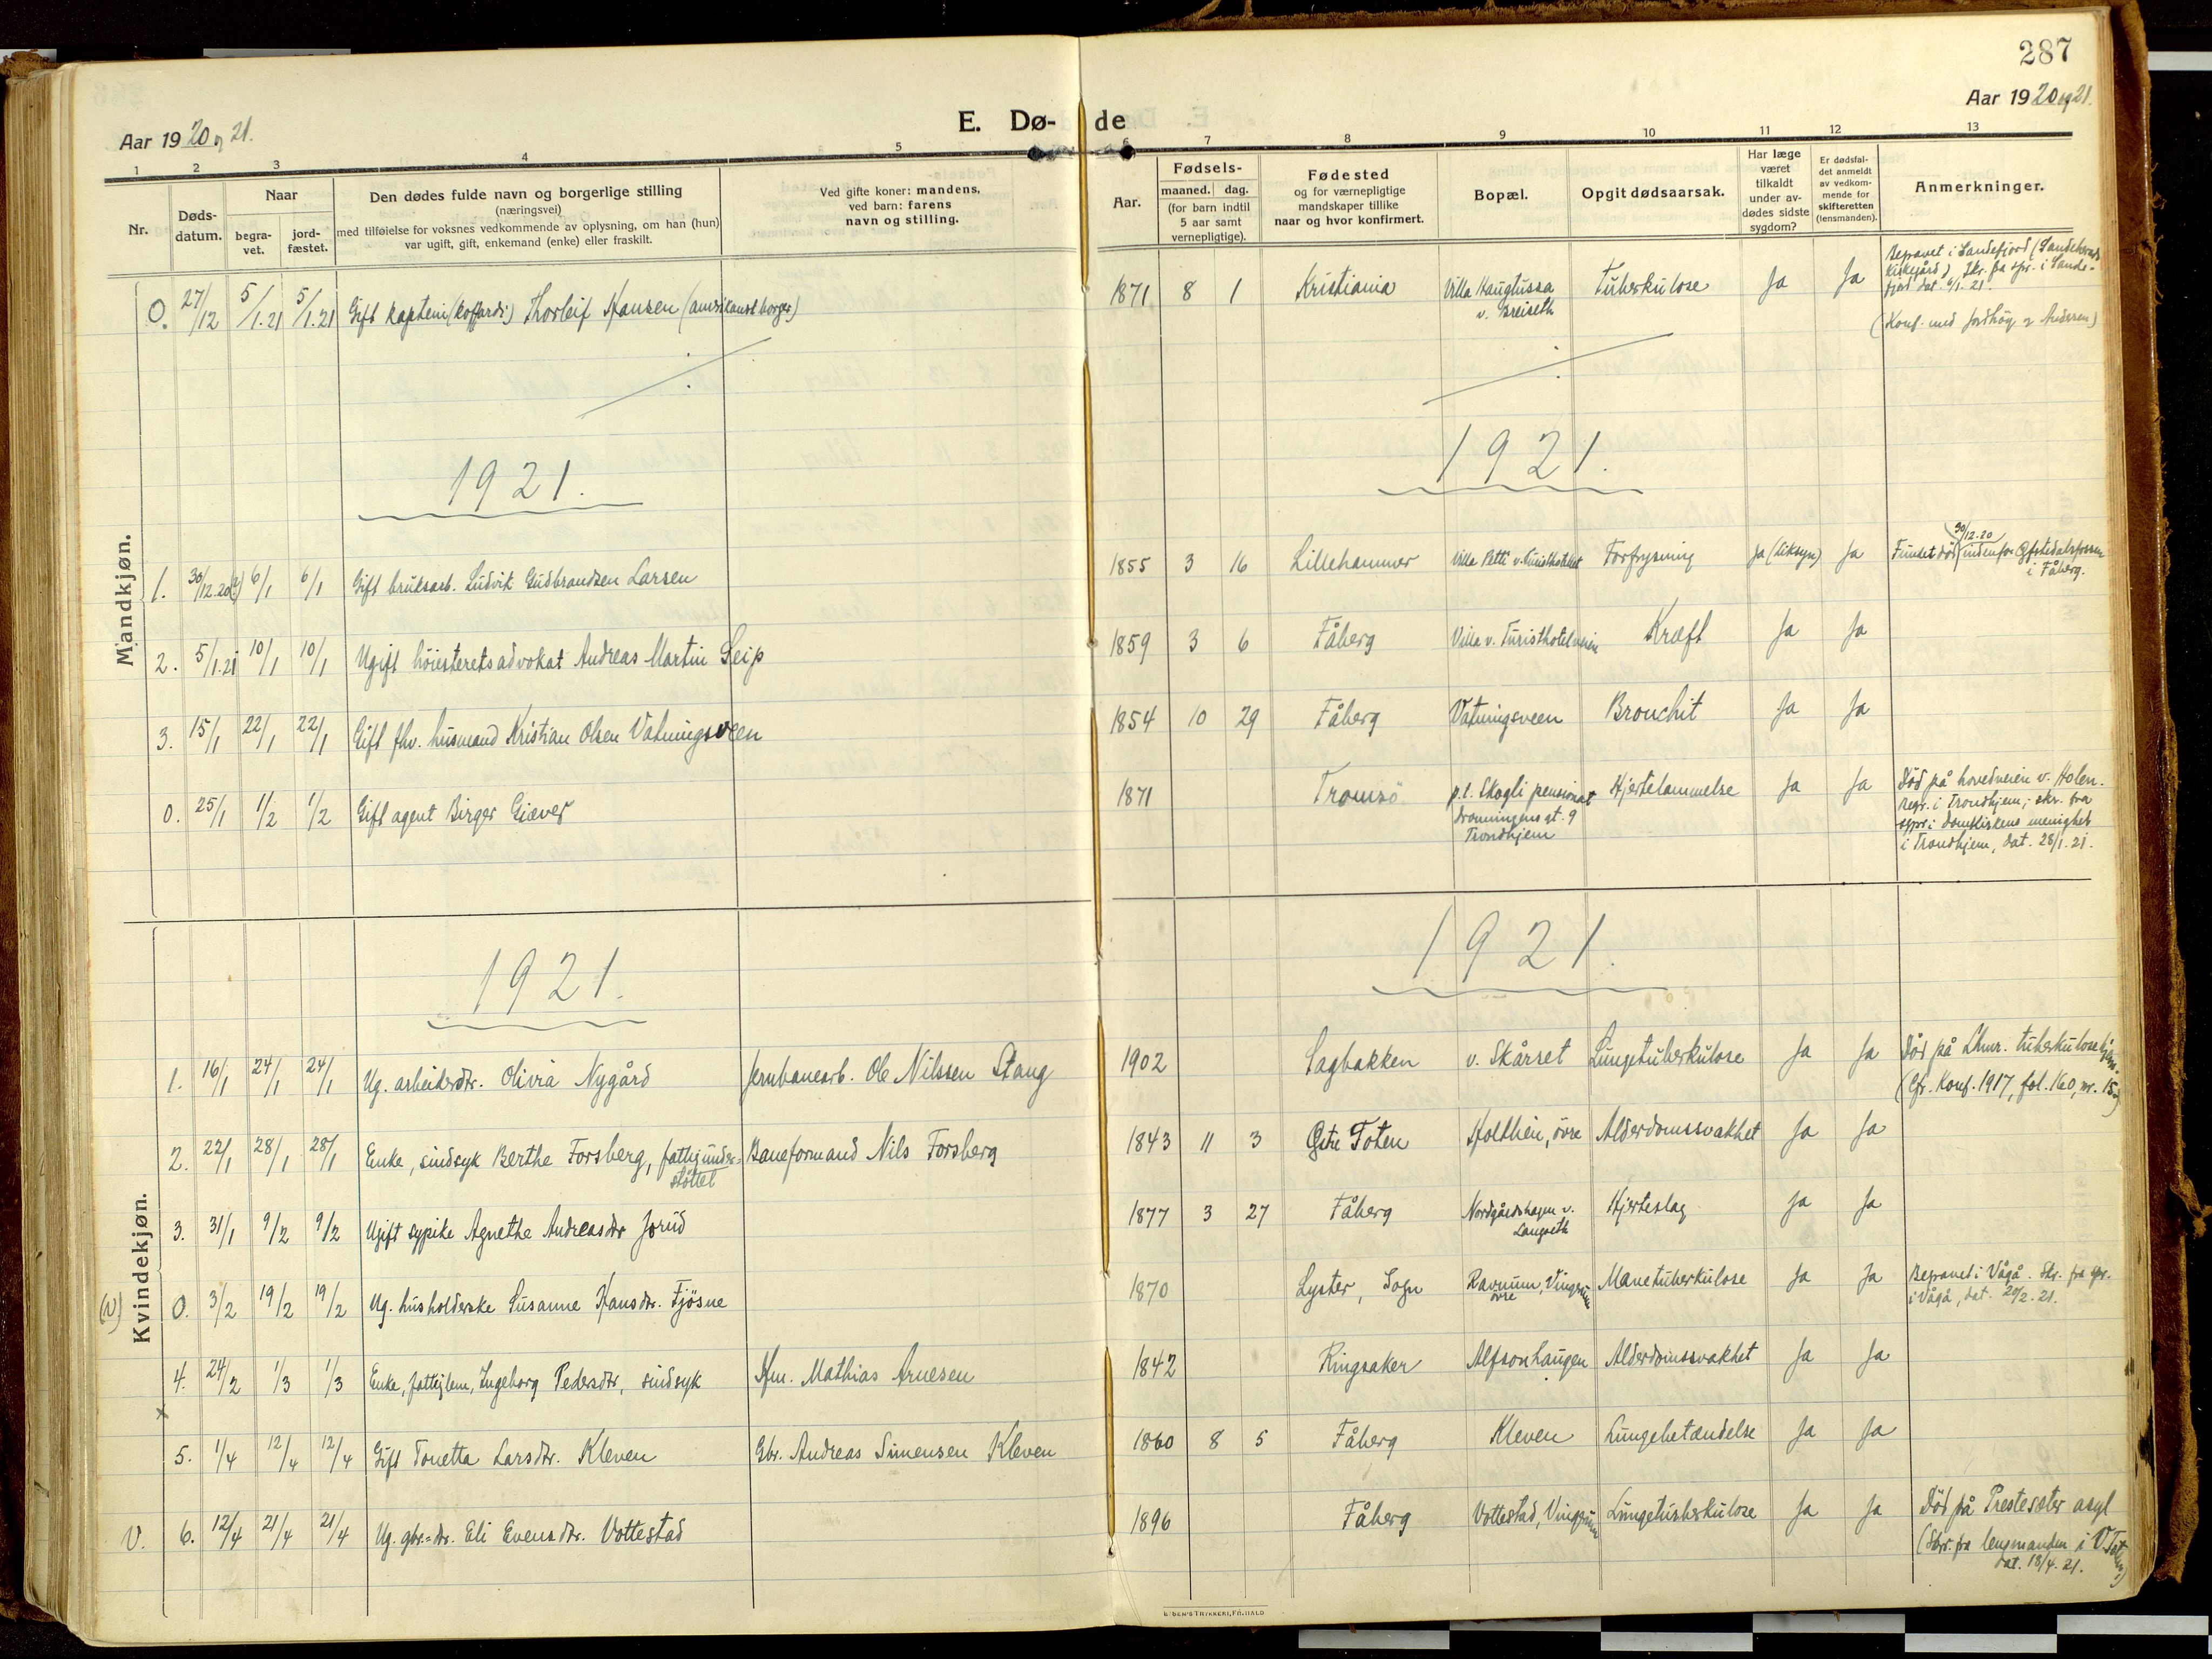 287
Aar 1920 og 21.
E. Dø-
de
Aar 1920 og 21.
1 2 3 4 5 6 7 8 9 10 11 12 13
Nr.
Døds-
datum.
Naar
begra-
vet.
jord-
fæstet.
Den dødes fulde navn og borgerlige stilling
(næringsvei)
med tilføielse for voksnes vedkommende av oplysning, om han (hun)
var ugift, gift, enkemand (enke) eller fraskilt.
Ved gifte koner: mandens,
ved barn: farens
navn og stilling.
Aar.
Fødsels-
maaned. dag.
(for barn indtil
5 aar samt
vernepligtige).
Fødested
og for værnepligtige
mandskaper tillike
naar og hvor konfirmert.
Bopæl.
Opgit dødsaarsak.
Har læge
været
tilkaldt
under av-
dødes sidste
sygdom?
Er dødsfal-
det anmeldt
av vedkom-
mende for
skifteretten
(lensmanden).
Anmerkninger.
Mandkjøn.
0. 27/12 5/1.21 5/1.21 Gift kaptein (koffardi) Thorleif Hansen (amerikansk borger) 1871 8 1 Kristiania Villa Haugtussa
v. Breiseth Tuberkulose Ja Ja Begravet i Sandefjord (Sandeherads
kirkegård) Skr. fra spr. i Sande-
fjord dat. 6/1.21
1921.
1921.
1. 30/12.20(?) 6/1 6/1 Gift bruksarb. Ludvik Gudbrandsen Larsen 1855 3 16 Lillehammer Villa Petti v. Turisthotellet Forfrysning Ja (liksyn) Ja Fundet död 30/12.20
i Fåberg.
2. 5/1.21 10/1 10/1 Ugift höiesteretsadvokat Andreas Martin Seip 1859 3 6 Fåberg Villa v. Turisthotelveien Kræft Ja Ja
3. 15/1 22/1 22/1 Gift fhv. husmand Kristian Olsen Vatningsveen 1854 10 29 Fåberg Vatningsveen Bronchit Ja Ja
0. 25/1 1/2 1/2 Gift agent Birger Giæver 1871 Tromsö p.t. Skogli pensionat
Dronningens gt. 9
Trondhjem Hjertelammelse Ja Ja Död på hovedveien v. Holen.
Begr. i Trondhjem; skr. fra
spr. i Domkirkens menighet
i Trondhjem, dat. 28/1.21.
1921.
1921.
Kvindekjøn.
1. 16/1 24/1 24/1 Ug. arbeiderdtr. Olivia Nygård Jernbanearb. Ole Nilssen Stang 1902 Sagbakken v. Skårset Lungetuberkulose Ja Ja Död på Lhmr. tuberkulosehjem.
(Cfr. Konf. 1917, fol. 160, nr. 15.)
2. 22/1 28/1 28/1 Enke, sindsyk Berthe Forsberg, fattigunder-
støttet Baneformand Nils Forsberg 1843 11 3 Östre Toten Holthein, övre Alderdomssvakhet Ja Ja
3. 31/1 9/2 9/2 Ugift sypike Agnethe Andreasdtr Jorud 1877 3 27 Fåberg Nordgårdshagen v.
Langseth Hjerteslag Ja Ja
(V) 0. 3/2 19/2 19/2 Ug. husholderske Susanne Hansdtr. Fjösne 1870 Lyster, Sogn Ravnum, Vingrum
övre Mavetuberkulose Ja Ja Begravet i Vågå. Skr. fra spr.
i Vågå, dat. 20/2.21.
4. 24/2 1/3 1/3 Enke, fattiglem, Ingeborg Pedersdtr, sindsyk Hm. Mathias Arnesen 1842 Ringsaker Alfsonhaugen Alderdomssvakhet Ja Ja
x
5. 1/4 12/4 12/4 Gift Tonetta Larsdtr. Kleven Gbr. Andreas Simensen Kleven 1860 8 5 Fåberg Kleven Lungebetændelse Ja Ja
V. 6. 12/4 21/4 21/4 Ug. gbr.-dtr. Eli Evensdtr. Vottestad 1896 Fåberg Vottestad, Vingrum Lungetuberkulose Ja Ja Död på Presteseter asyl
(Skr. fra lensmanden i V. Toten,
dat. 18/4.21.